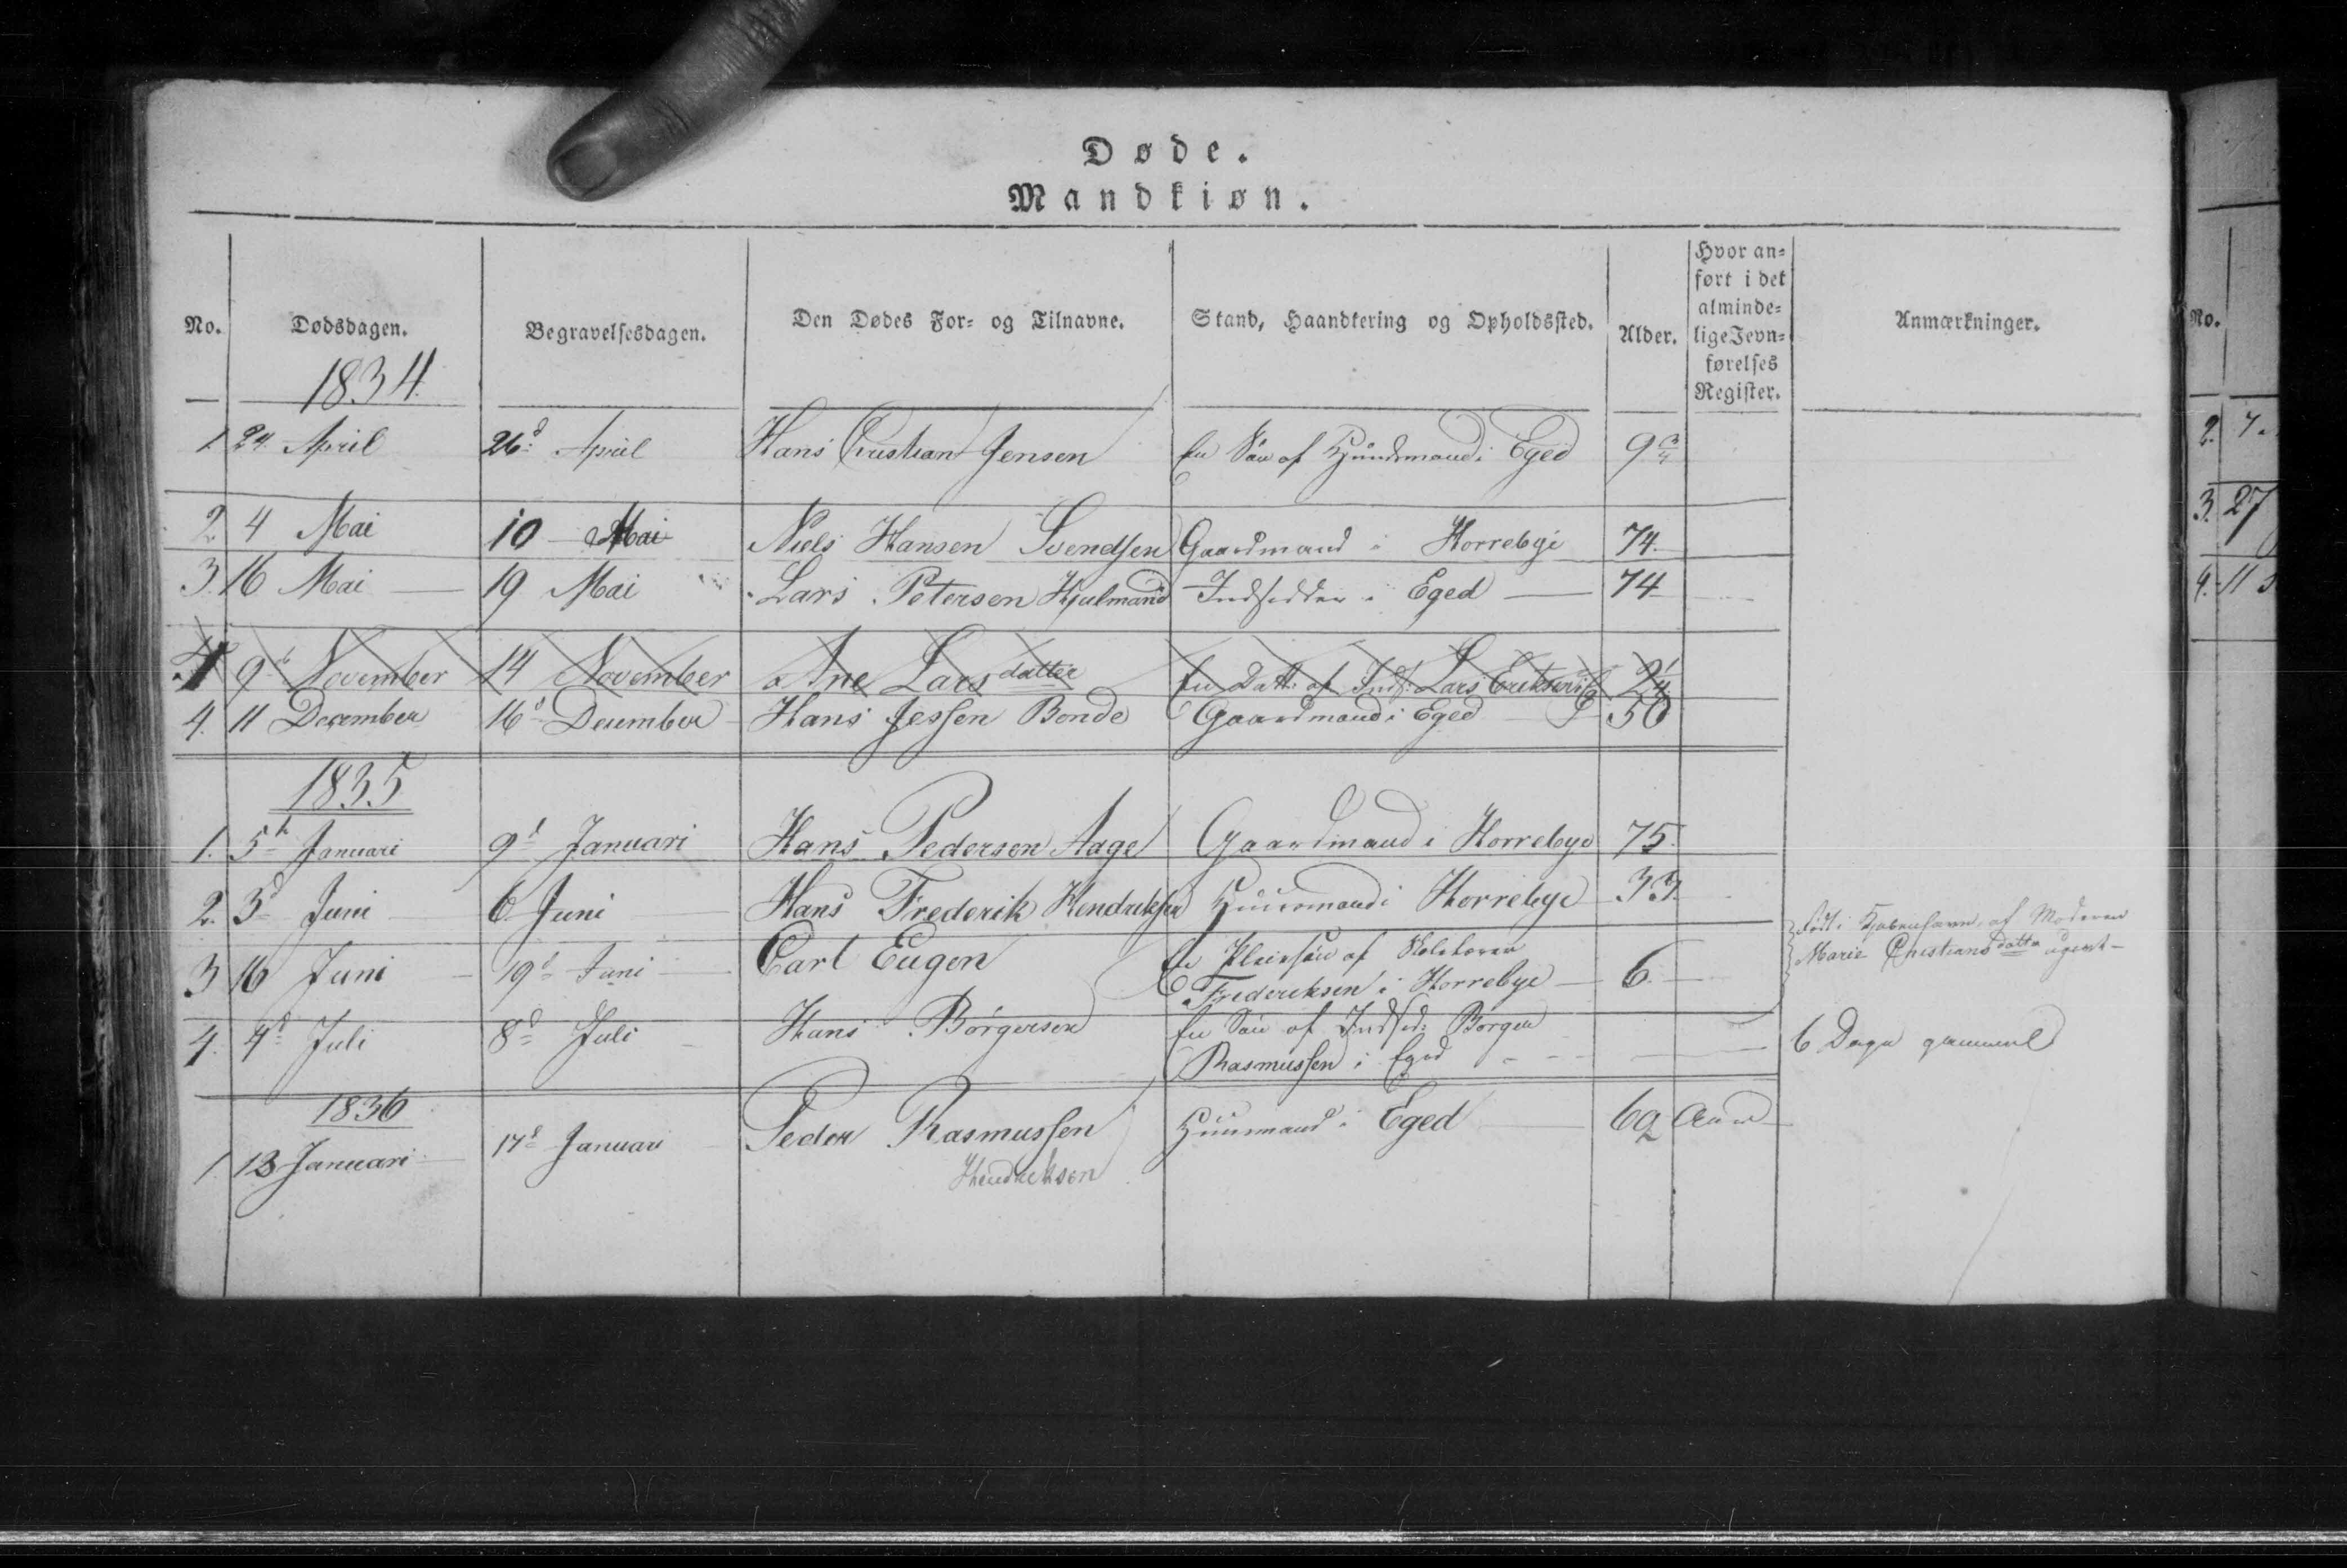 Døde.
Mandkiøn.
No. Dødsdagen. Begravelsesdagen. Den Dødes For- og Tilnavne. Stand, Haandtering og Opholdssted. Alder. Hvor an-
ført i det
alminde-
lige Jevn-
førelses
Register. Anmærkninger. No.
1834
1. 24 April 26d April Hans Christian Jensen En Søn af Huusmand i Eged 9 3/4
2. 4 Mai 10 Mai Niels Hansen Svendsen Gaardmand i Horrebye 74.
3. 16 Mai 19 Mai Lars Petersen Hjulmand Indsidder i Eged 74
4 9d November 14 November Ane Larsdatter En Datt: af Inds: Lars Eriksen 2 1/4
4. 11 December 16d December Hans Jessen Bonde Gaardmand i Eged 50
1835
1. 5te Januari 9d Januari Hans Pedersen Aage Gaardmand i Horrebye 75.
2. 3d Juni 6 Juni Hans Frederik Hendriksen Huusmand i Horrebye 33.
3 16 Juni 19d Juni Carl Eugen En Pleiesøn af Skolelærer
Frederiksen i Horrebye 6. født i Kjøbenhavn, af Moderen
Marie Christiansdatter ugivt
4. 4d Juli 8d Juli Hans Börgersen En Søn af Indsid: Börger
Rasmussen i Eged 6 Dage gammel
1836
1. 13 Januari 17d Januari Peder Rasmussen Huusmand i Eged 62 Aar
Hendriksen
2. 7.
3. 27
4. 11